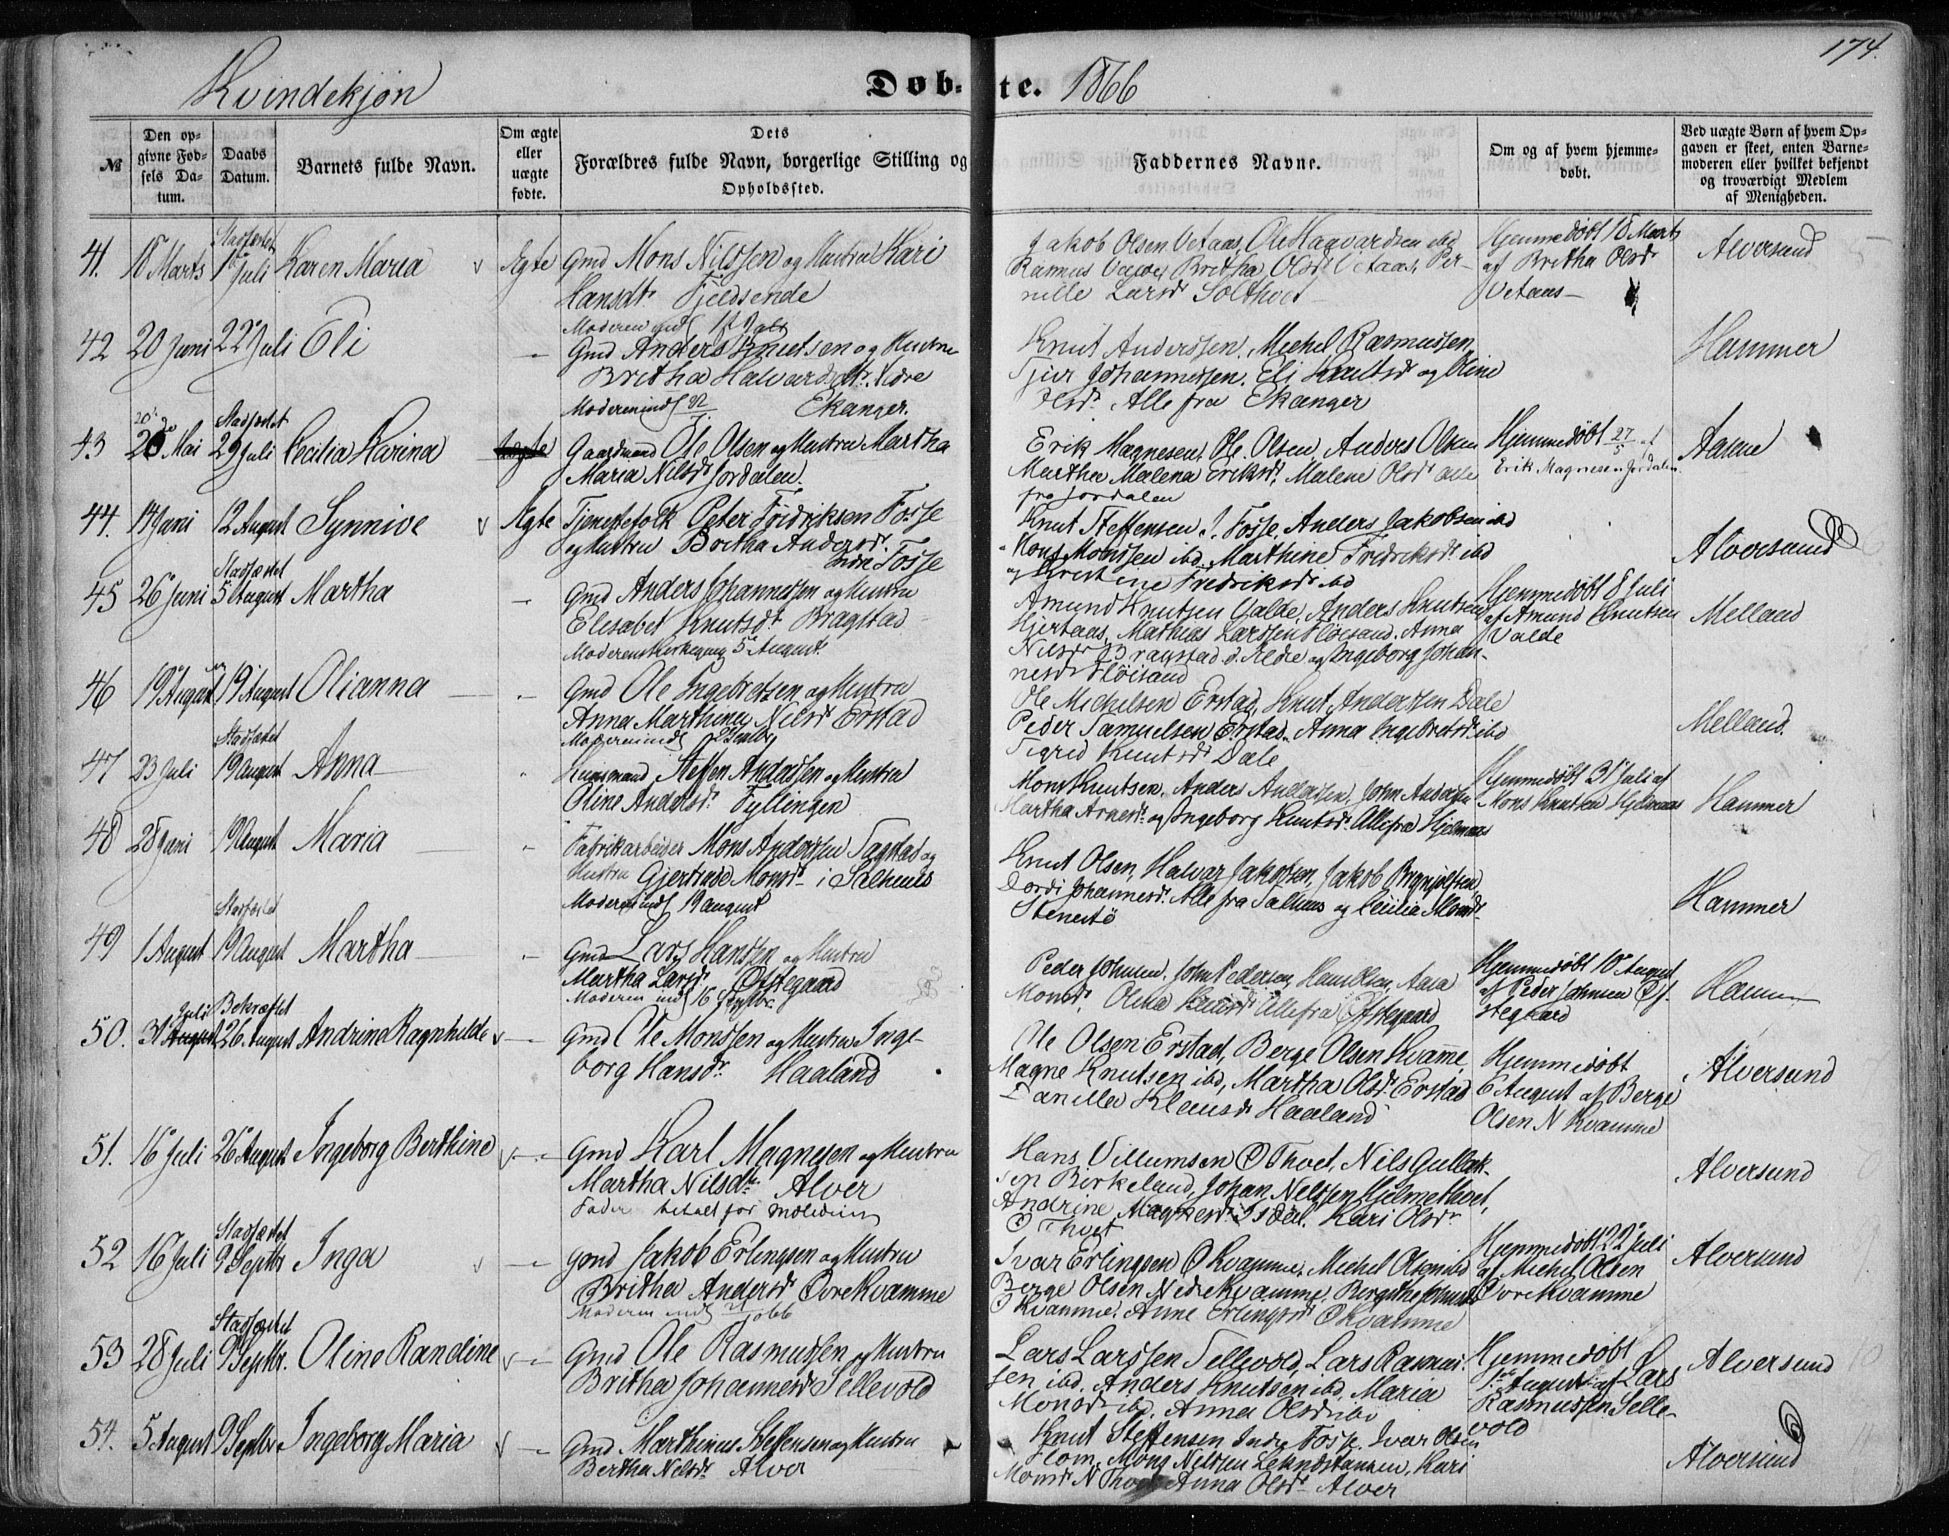 174.
Kvindekjøn
Døbte. 1866
№
Den opgivne Fødsels Datum.
Daabs Datum.
Barnets fulde Navn.
Om ægte eller uægte fødte.
Dets Forældres fulde Navn, borgerlige Stilling og Opholdssted.
Faddernes Navne.
Om og af hvem hjemmedøbt.
Ved uægte Børn af hvem Opgaven er skeet, enten Barnemoderen eller hvilket bekjendt og troværdigt Medlem af Menigheden.
41. 18 Marts Stadfæstet 1ste Juli Karen Maria Ægte
Gmd Mons Nilssen og Hustru Kari
Hansdr Fjeldsende
Jakob Olsen Vetaas, Ole Hagvardsen ibd
Rasmus Britha Olsdr Vetaas, Per-
nille Larsdr Solthvet
Hjemmedøbt 18 Marts
af Britha Olsdr
Vetaas
Alversund
42 20 Juni 22 Juli Eli
Moderen indl 1st Juli
Gmd Anders Knutsen og Hustru
Britha Halvardsdtr. Nedre
Ekanger.
Knut Anderssen, Michel Rasmussen,
Johannessen, Eli Knutsdr og Oline
Olsdr. Alle fra Ekanger
Hammer
43 26 Mai Stadfæstet 29 Juli Cecilia Karina
Moderen indl 22/7
Gaardmand Ole Olsen og Hustru Martha
Maria Nilsdr Jordalen.
Erik Magnesen, Ole Olsen, Anders Olsen
Martha Malena Eriksdr, Malene Olsdr alle
fra Jordalen
Hjemmedøbt 27/5 af
Erik Magnesen Jordalen.
Aasene
44. 17 Juni 12 August Synnive Ægte
Tjenestefolk Peter Fredriksen Fosse
og Hustru Britha Andersdr.
Indre Fosse
Knut Steffensen I. Fosse, Anders Jakobsen ibd
Mons Monssen ibd, Marthine Fredriksdr ibd
og Kristine Fredriksdr ibd
Alversund
45 26 Juni Stadfæstet 5 August Martha
Gmd Anders Johannessen og Hustru
Elisabet Knutsdr Bragstad
Moderens Kirkegang 5 August.
Amund Knutsen Valde, Anders Knutsen
Hjertaas, Mathias Larssen Fløisand, Anna
Nilsdr Bragstad d. Ældre og Ingeborg Johan-
nesdr Fløisand
Hjemmedøbt 8 Juli
af Amund Knutsen
Valde
Melland
46 19 August 19 August Olianna
Gmd Ole Ingebretsen og Hustru
Anna Marthine Nilsdr Erstad
Ole Michelsen Erstad, Knut Anderssen Dale
Peder Samuelsen Erstad, Anna Ingebretsdr ibd
Sigrid Knutsdr Dale
Melland.
47 23 Juli Stadfæstet 19 August Anna
Moderen indl
Huusmand Steffen Anderssen og Hustru
Oline Andersdr. Fyllingen
Mons Knutsen, Anders Anderssen, John Anderssen
Martha Arnesdr og Ingeborg Knutsdr. Alle fra Hjelmaas
Hjemmedøbt 31 Juli af
Mons Knutsen Hjelmaas
Hammer
48 28 Juni 19 August Maria
Fabrikarbeider Mons Anderssen Sagstad og
Hustru Gjertrude Monsdr i Salhuus
Moderen indl 19 August
Knut Olsen, Halvar Jakobsen, Jakob Brynjulfsen,
Dordi Johannesdr. Alle fra Salhuus og Cecilia Monsdr
Stenestø
Hammer
49 1 August Stadfæstet 19 August Martha
Gmd Lars Hanssen og Hustru
Martha Larsdr Øftegaard
Moderen indl 16 Septbr.
Peder Johnsen, John Pedersen, Hans Olsen, Aasa
Monsdr, Olina Knutsdr Alle fra Øftegaard
Hjemmedøbt 10 August
af Peder Johnsen Øf-
tegaard
Hammer
50. 31 Juli Bekræftet 26 August Andrine Ragnhilde
Gmd Ole Monssen og Hustru Inge-
borg Hansdr. Haaland
Ole Olsen Erstad, Berge Olsen Kvamme,
Magne Knutsen ibd, Martha Olsdr Erstad
Danilla Klausdr Haaland
Hjemmedøbt
6 August af Berge
Olsen N Kvamme
Alversund
51. 16 Juli 26 August Ingeborg Berthine
Gmd Karl Magnesen og Hustru
Martha Nilsdr. Alver
Fader betalt for
Hans Villumsen Ø Thvet, Nils Gullak-
sen Birkeland, Johan Nilssen Hjelmethvet,
Andrine Magnesdr Isdal. Kari Olsdr
Ø Thvet
Alversund
52 16 Juli Stadfæstet 9 Septbr Inga
Gmd Jakob Erlingsen og Hustru
Britha Andersdr Øvre Kvamme
Ivar Erlingsen Ø Kvamme, Michel Olsen ibd
Berge Olsen Nedre Kvamme, Birgithe
Ø Kvamme. Anne Erlingsdr Ø Kvamme
Hjemmedøbt 22 Juli
af Michel Olsen
Øvre Kvamme
Alversund
53 28 Juli Stadfæstet 9 Septbr. Oline Randine
Moderen indl
Gmd Ole Rasmussen og Hustru
Britha Johannesdr Sellevold
Lars Larssen Sellevold, Lars Rasmus-
sen ibd, Anders Knutsen ibd, Maria
Monsdr ibd. Anna Olsdr ibd
Hjemmedøbt
1st August af Lars
Rasmussen Selle-
vold
Alversund
54. 5 August 9 Septbr Ingeborg Maria
Gmd Marthinus Steffensen og Hustru
Bertha Nilsdr. Alver
Knut Steffensen Indre Fosse, Ivar Olsen
Hom, Mons Nilssen, Kari
Monsdr N Thvet, Anna Olsdr Alver
Alversund